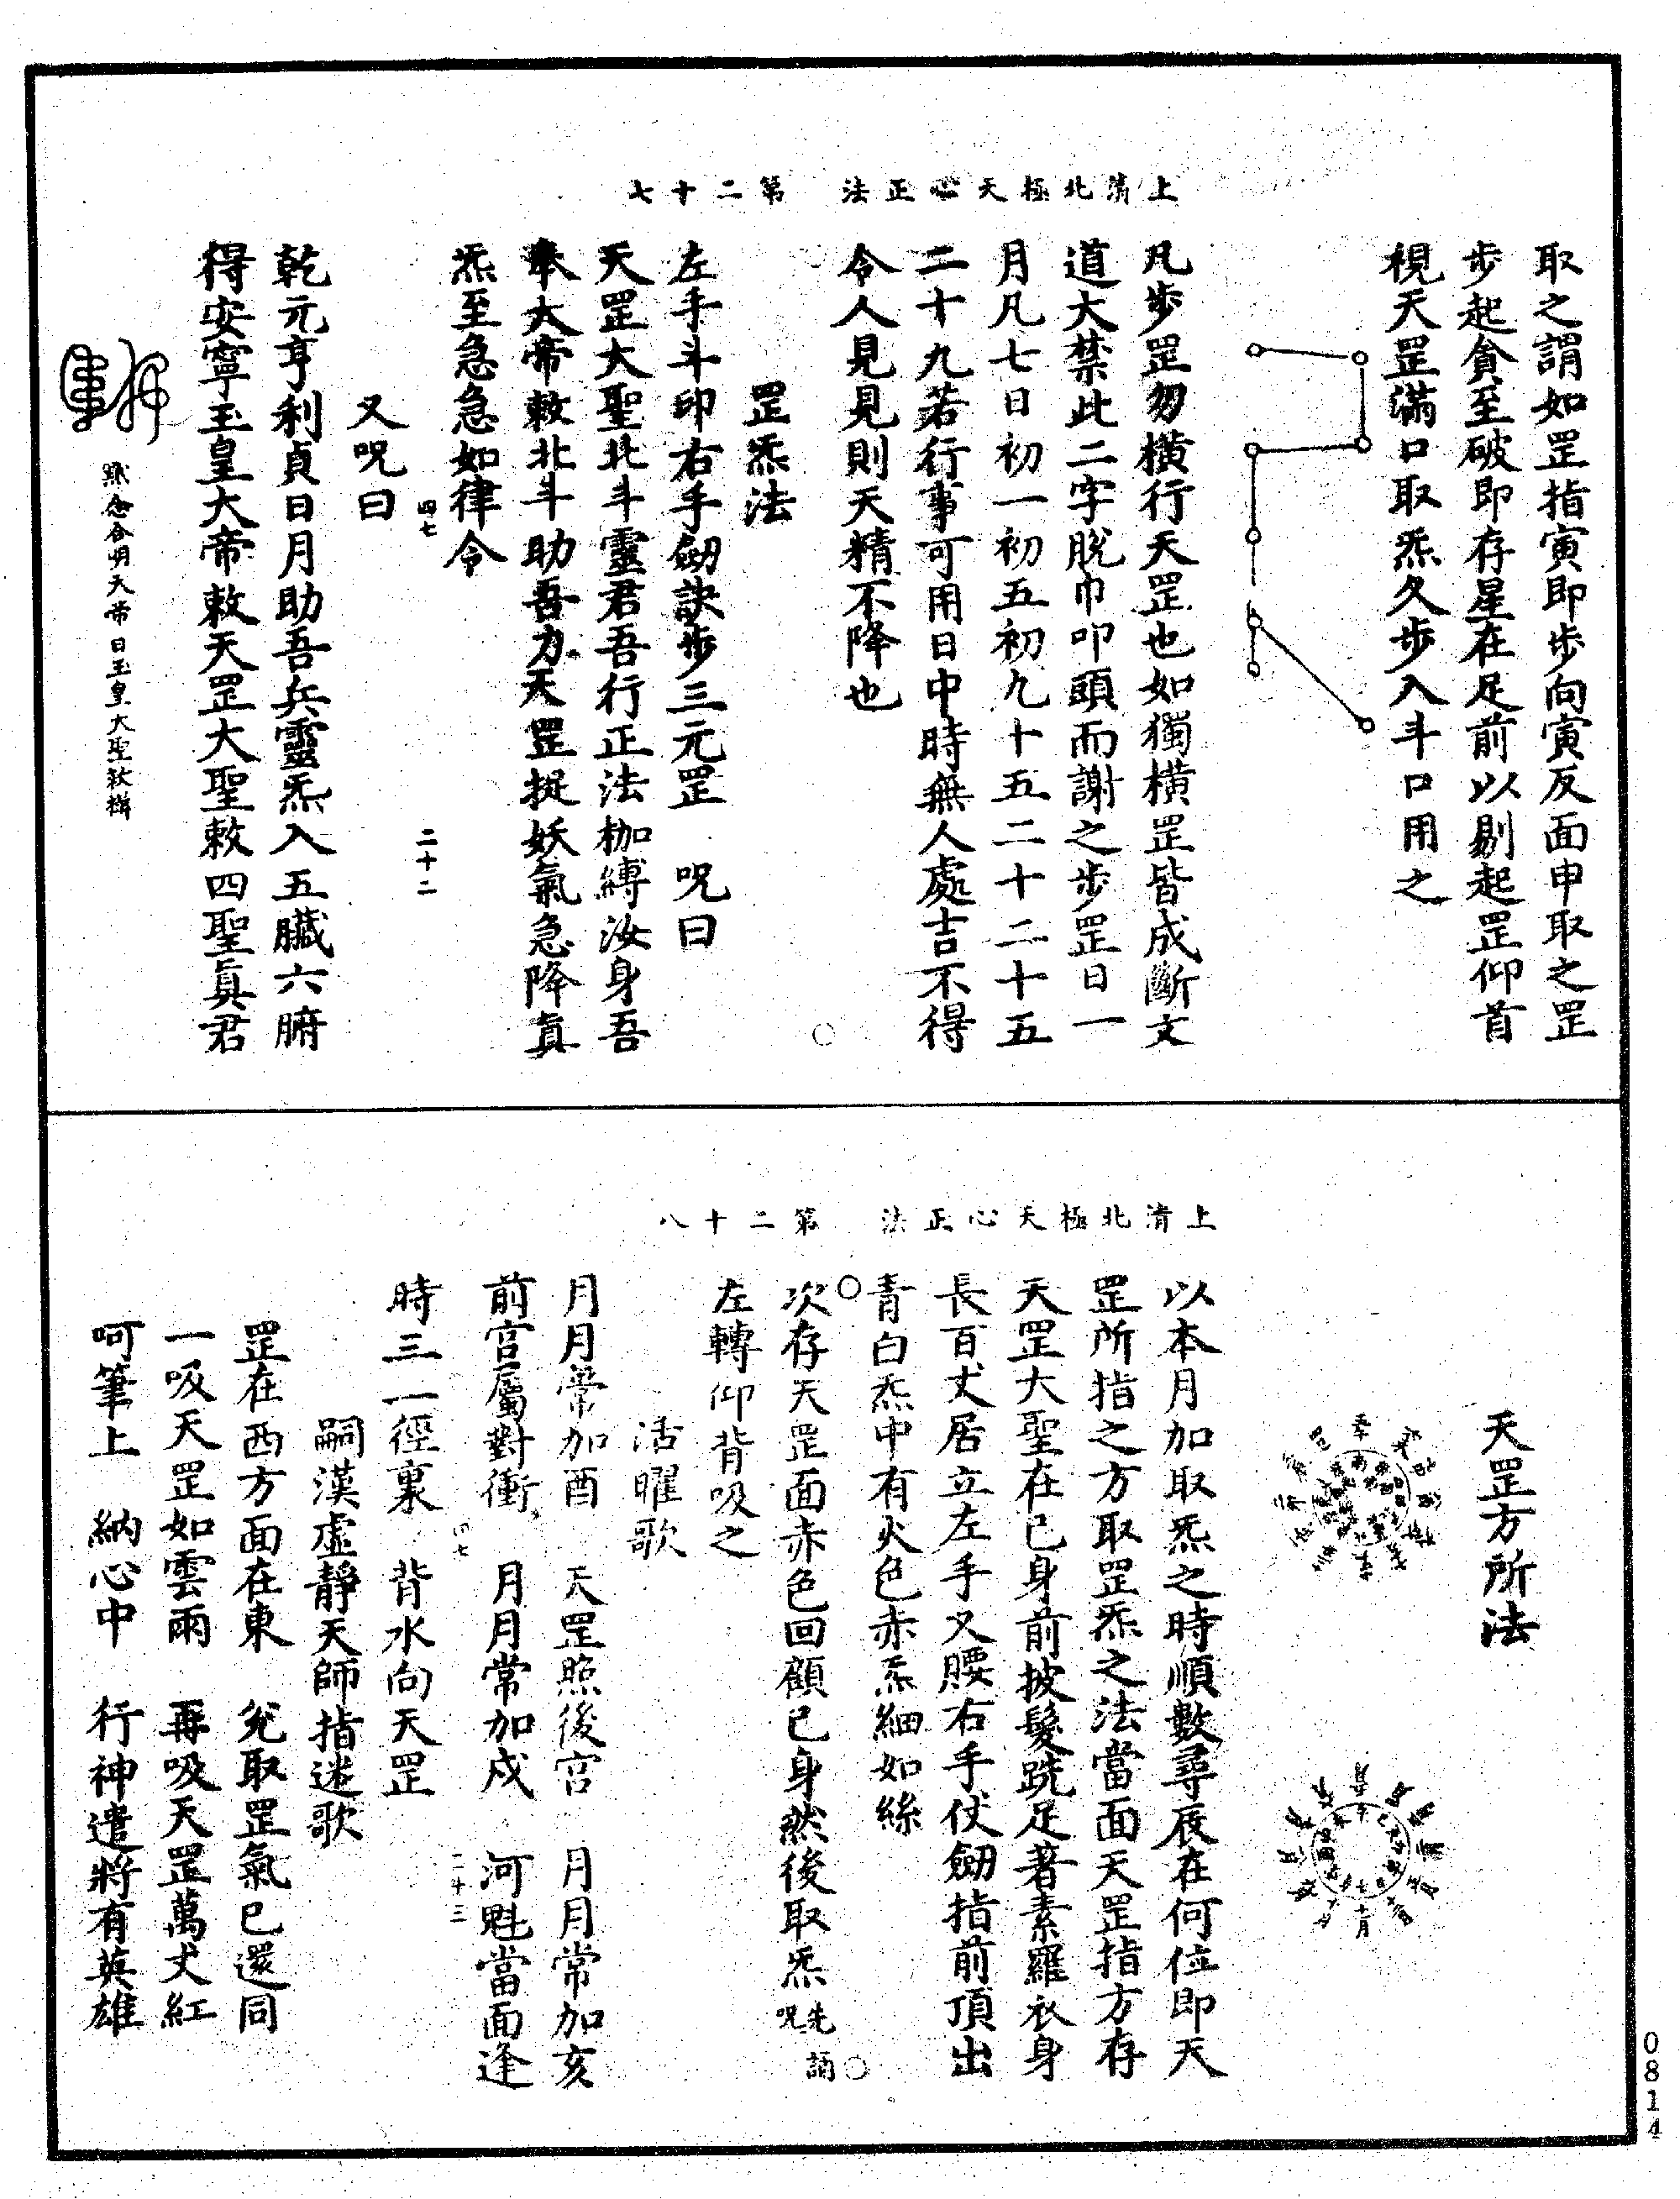 上清北極天心正法　第二十七
取之謂如罡指寅即步向寅反面申取之罡
步起貪至破即存星在足前以剔起罡仰首
視天罡滿口取炁久步入斗口用之
凡步罡勿橫行天罡也如獨橫罡皆成斷文
道大禁此二字脫巾叩頭而謝之步罡日一
月凡七日初一初五初九十五二十二十五
二十九若行事可用日中時無人處吉不得
令人見見則天精不降也
罡炁法
左手斗印右手劒訣步三元罡　呪曰
天罡大聖北斗靈君吾行正法枷縛汝身吾
奉大帝敕北斗助吾力天罡捉妖氣急降真
炁至急急如律令
四七　二十二
又呪曰
乾元亨利貞日月助吾兵靈炁入五臟六腑
得安寧玉皇大帝敕天罡大聖敕四聖眞君
念合明天帝日玉皇大聖
上清北極天心正法　第二十八
天罡方所法
以本月加取炁之時順數尋辰在何位即天
罡所指之方取罡炁之法當面天罡指方存
天罡大聖在己身前披髮跣足著素羅衣身
長百丈居立左手叉腰右手仗劒指前頂出
青白炁中有火色赤炁細如絲
次存天罡面赤色回顧己身然後取炁先誦呪
左轉仰背吸之
活曜歌
月月常加酉　天罡照後宮　月月常加亥
前宮屬對衝　月月常加戍　河魁當面逢
四七　二十三
時三一徑裏　背水向天罡
嗣漢虛靜天師指迷歌
罡在西方面在東　兊取罡氣已還同
一吸天罡如雲雨　再吸天罡萬丈紅
呵筆上　納心中　行神遣將有英雄
0814